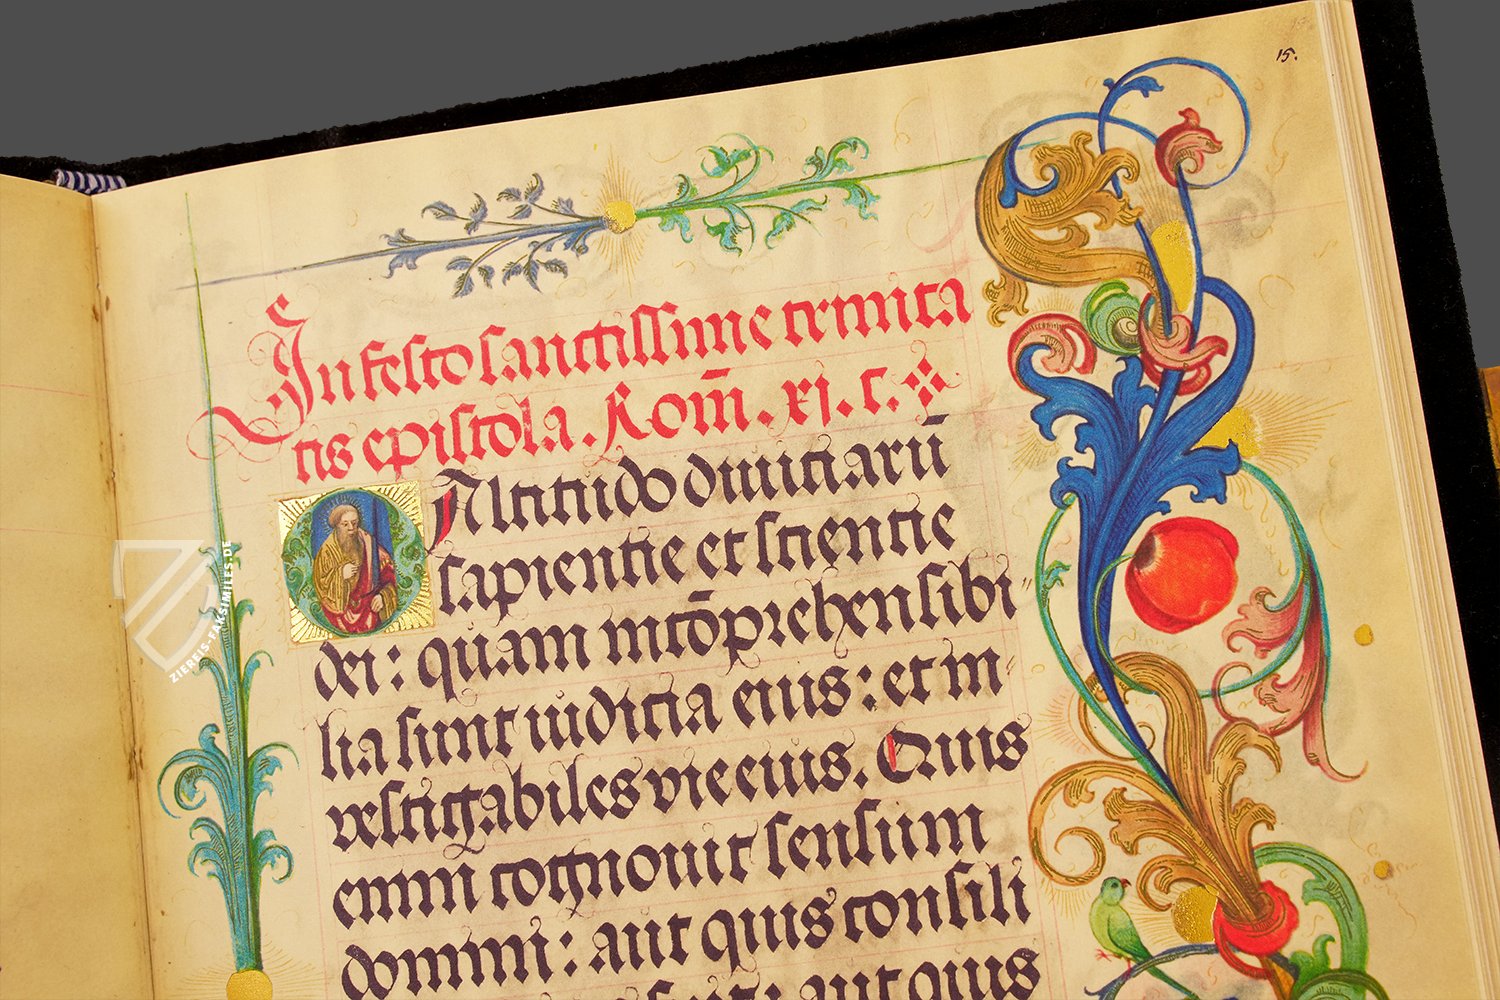 15.
In festo sanctissime trinita
tis epistola. Rom̄. xj. c.
O Altitudo diuitiarū
sapientie et scientie
dei: quam incōprehensibi
lia sunt iudicia eius: et in
vestigabiles vie eius. Quis
enim cognouit sensum
domini: aut quis consili
aut quis
ZIEREIS-FAKSIMILES.DE